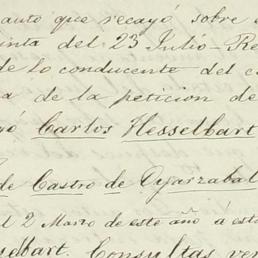 auto que recayó sobre
inta del 23 Julio - Re
de lo conducente del e
a de la peticion de
yó Carlos Hesselbart
de Castro de Oyarzabal
el 2 Marzo de este año á est
selbart. Consultas ver